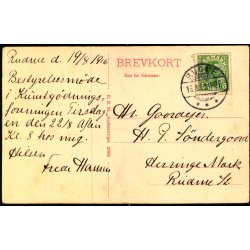 BREVKORT
Kun for Adressen.
Rudme d. 19/8 1916
Bestyrelsesmöde
i Kunstgödnings-
foreningen Tirsdag
en den 22/8 Aften
Kl. 8 hos mig.
Hilsen
Frede Hansen
Hr. Gaardejer
H. P. Söndergaard
Herringe Mark
Rudme St